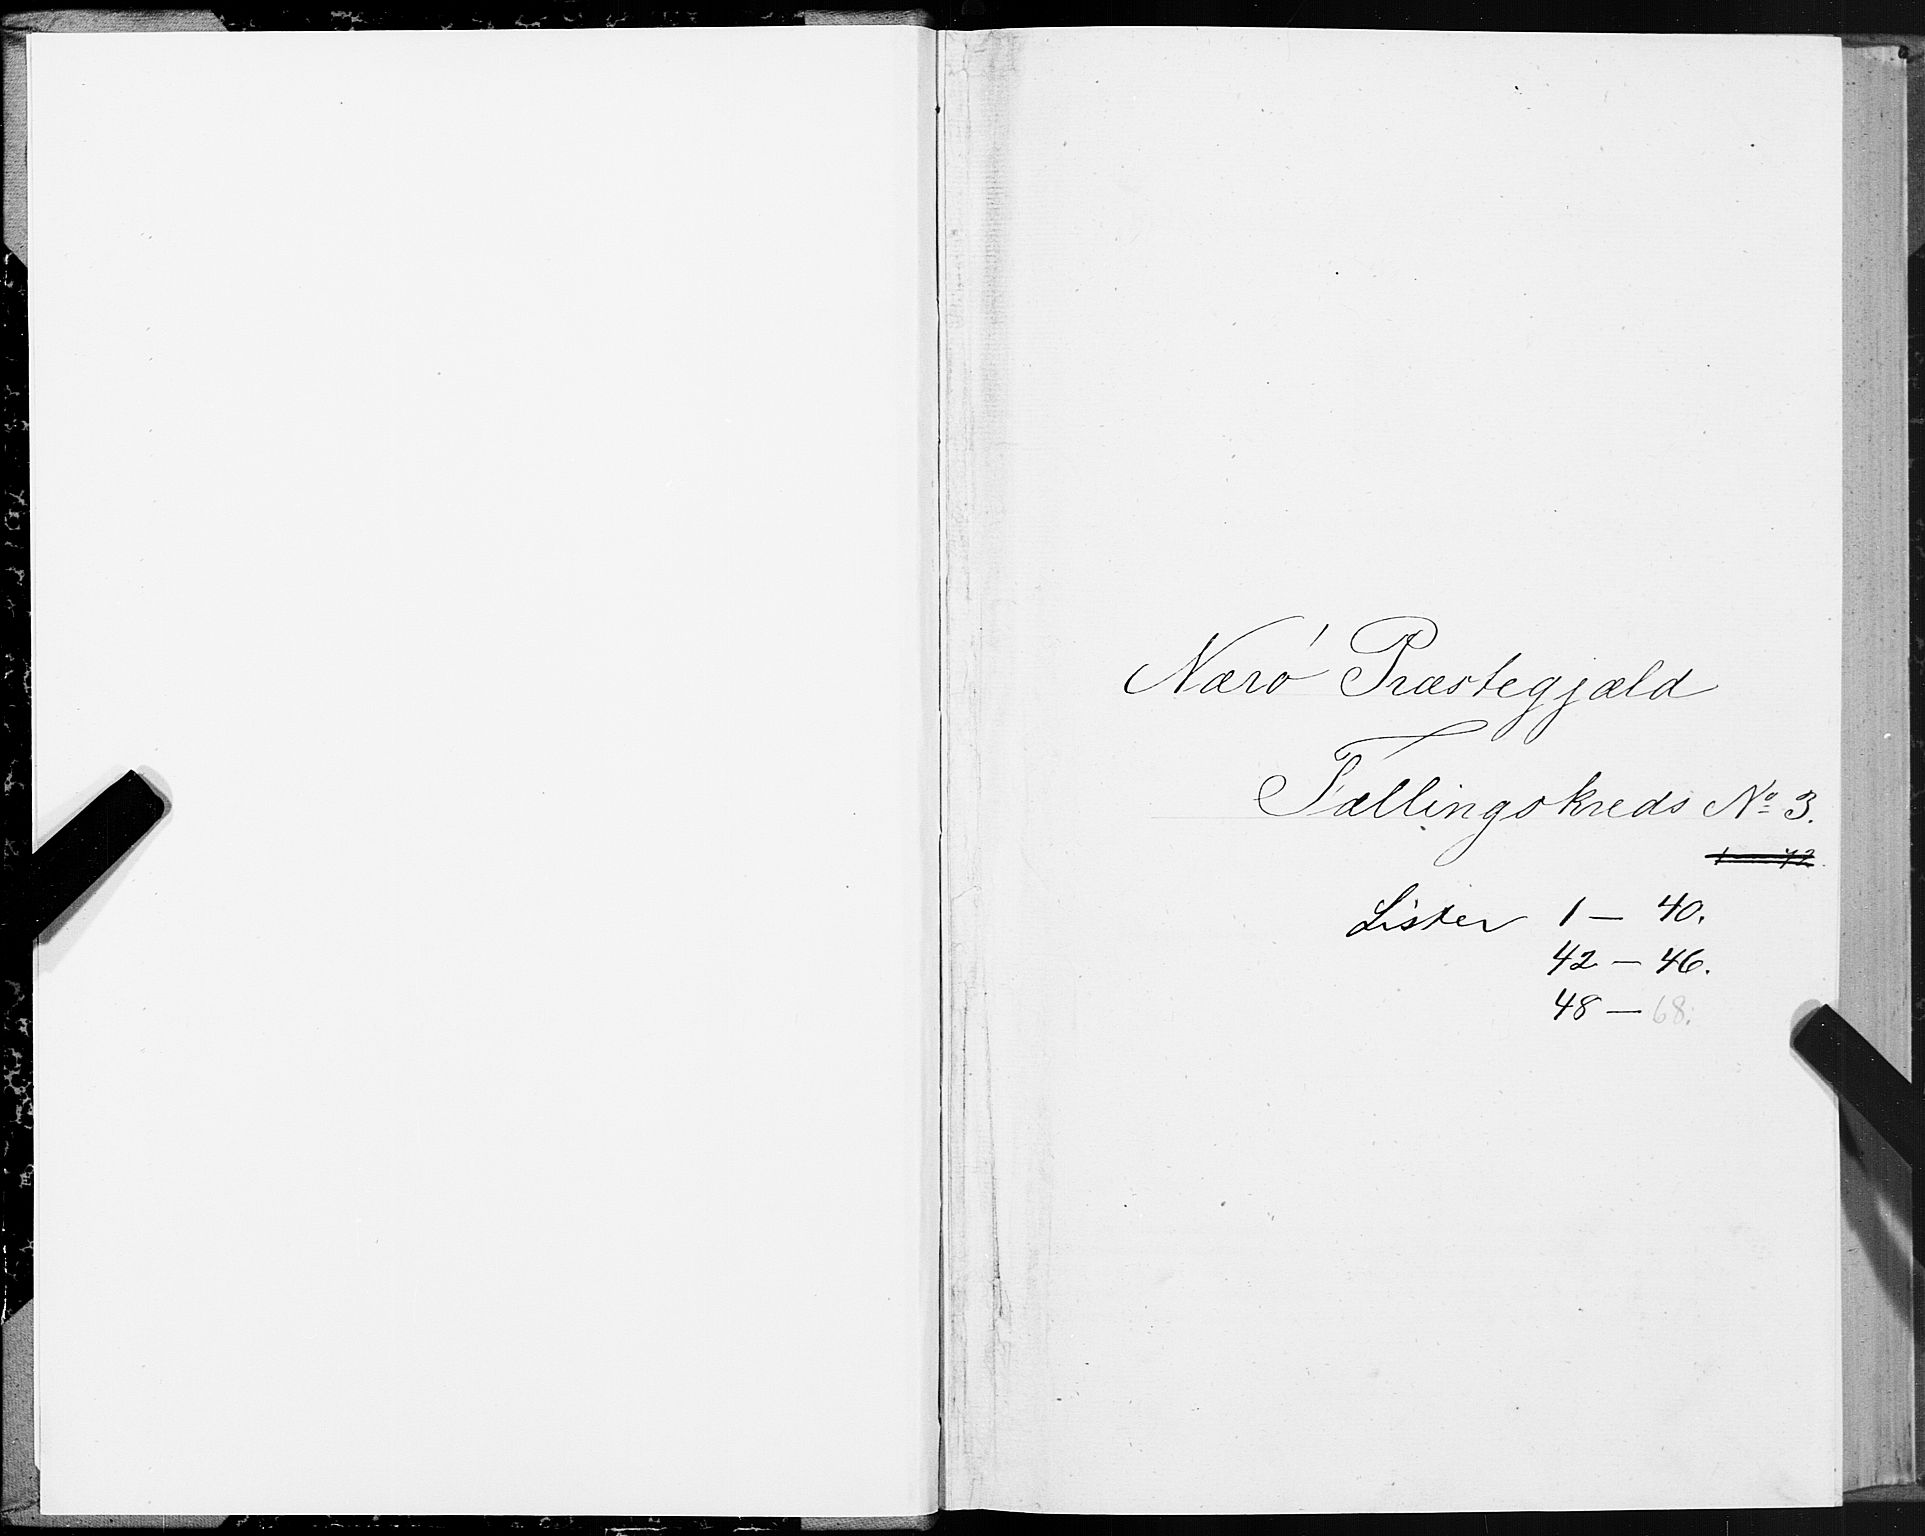 Nærø Præstegjæld
Tællingskreds No 3.
1 — 42
Lister 1 — 40.
42 — 46.
48 — 68.